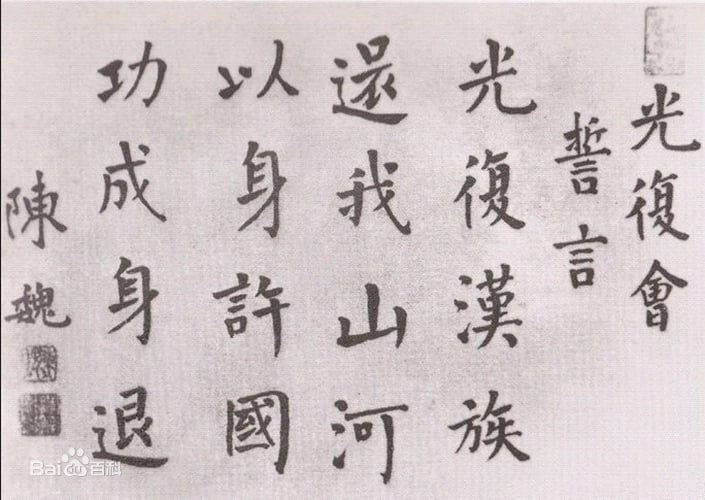 光復會
誓言
光復漢族
還我山河
以身許國
功成身退
陳魏
Bai百科